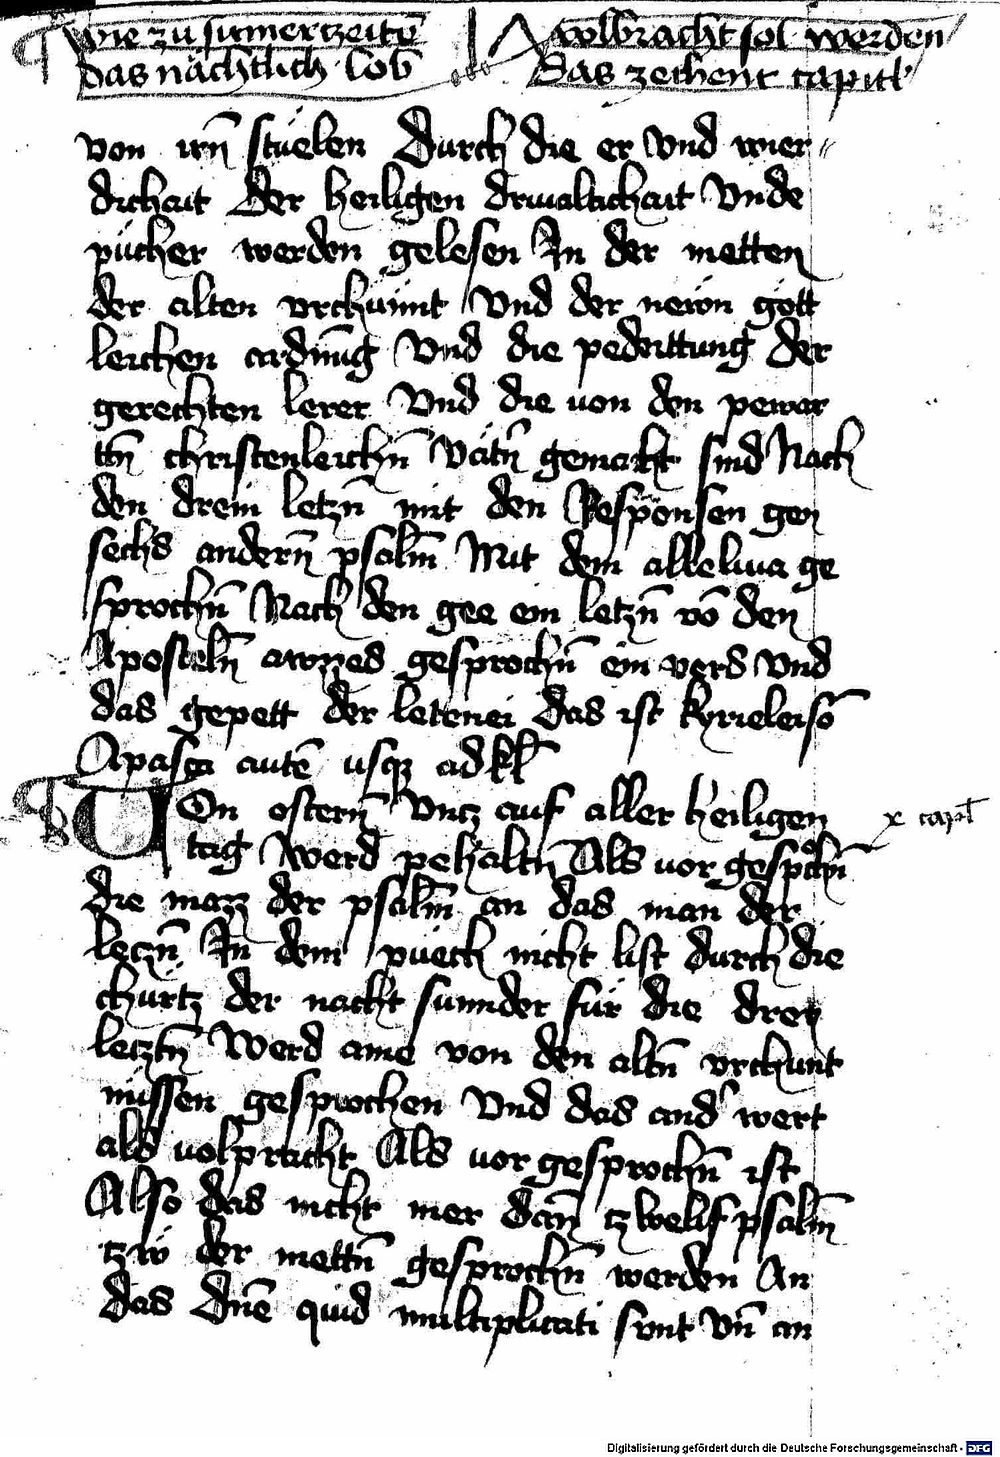 Wie zu sumerczeitn̄ volbracht sol werden
das nächtlich lob Das zechent capitl
von irn̄ stüelen Durch die er vnd wier
dichait Der heiligen driualtichait Vnde
pücher werden gelesen In der metten
der alten vrchünt Vnd der newn gott
leichen ordnu̅g Vnd die pedeuttung der
gerechten lerer Vnd die uon den pewar
ttn̄ christenleichn̄ Vätn̄ gemacht sind Nach
den drein letzn̄ mit den Responsen gen
sechs andern̄ psalm̄ Mit dem alleluia ge
sprochn̄ Nach den gee ein letzn̄ vō den
Aposteln̄ awzzed gesprochn̄ ein vers Vnd
das gepett der letenei das ist kyrieleisō
A pasca autē usqz ad kl̄
Von ostern̄ Vntz auf aller heiligen
x capl̄
tag Werd pehaltn̄ Als vor gespochn̄
die mazz der psalm̄ an das man der
leczn̄ In dem puech nicht list durch die
churtz der nacht sunnder für die drey
letztn̄ Werd aine von den altn̄ vrchunt
nüssen gesprochen Vnd das and' wert
als uolpracht Als uor gesprochn̄ ist
Also das nicht mer dan̄ tzwelif psalm̄
tzw der mettn̄ gesprochn̄ werden An
das Dn̄e quid multiplicati sunt Vn̄ an
Digitalisierung gefördert durch die Deutsche Forschungsgemeinschaft - DFG